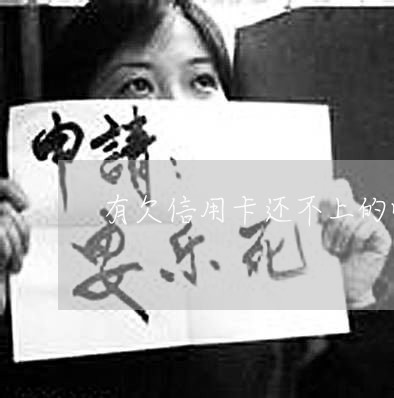 申請：
有欠信用卡还不上的
安乐死